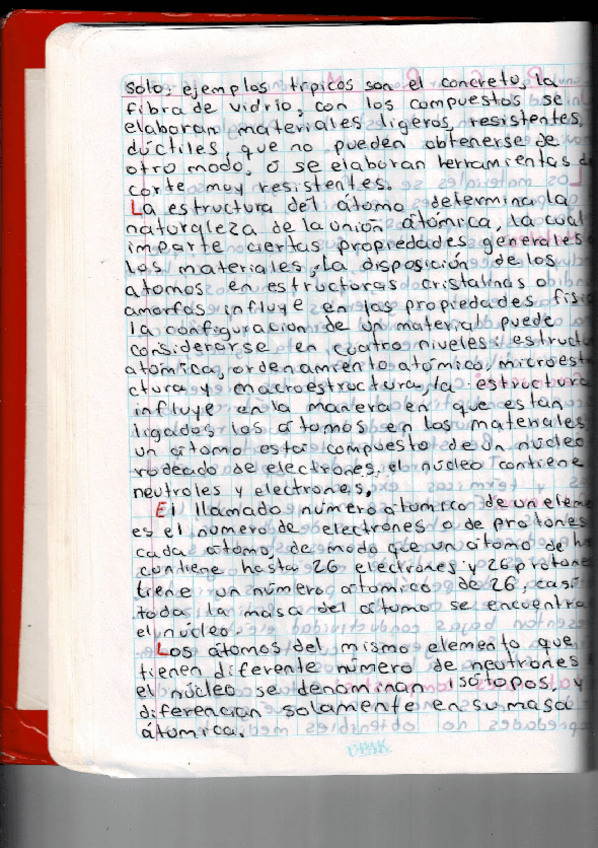 solo, ejemplos típicos son el concreto, la
fibra de vidrio, con los compuestos se
elaboran materiales ligeros, resistentes,
dúctiles, que no pueden obtenerse de
otro modo, o se elaboran herramientas d
corte muy resistentes.
La estructura del átomo determina la
naturaleza de la unión atómica, la cual
imparte ciertas propiedades generales
los materiales, la disposición de los
atomos en estructuras cristalinas o
amorfas influye en las propiedades físi
la configuracion de un material puede
considerarse en cuatro niveles: estructu
atómica, ordenamiento atómico, microest
ctura y macroestructura, la estructura
influye en la manera en que estan
ligados los átomos en los materiales
un átomo está compuesto de un núcleo
rodeado de electrones, el núcleo contiene
neutroles y electrones.
El llamado número atomico de un eleme
es el número de electrones o de protones
cada átomo, de modo que un átomo de h
contiene hasta 26 electrones y 26 protone
tiene un número atomico de 26, casi
toda la masa del átomo se encuentra
el núcleo.
Los átomos del mismo elemento que
tienen diferente número de neutrones
el núcleo se denominan isótopos, y
diferencian solamente en su masa
átomica.